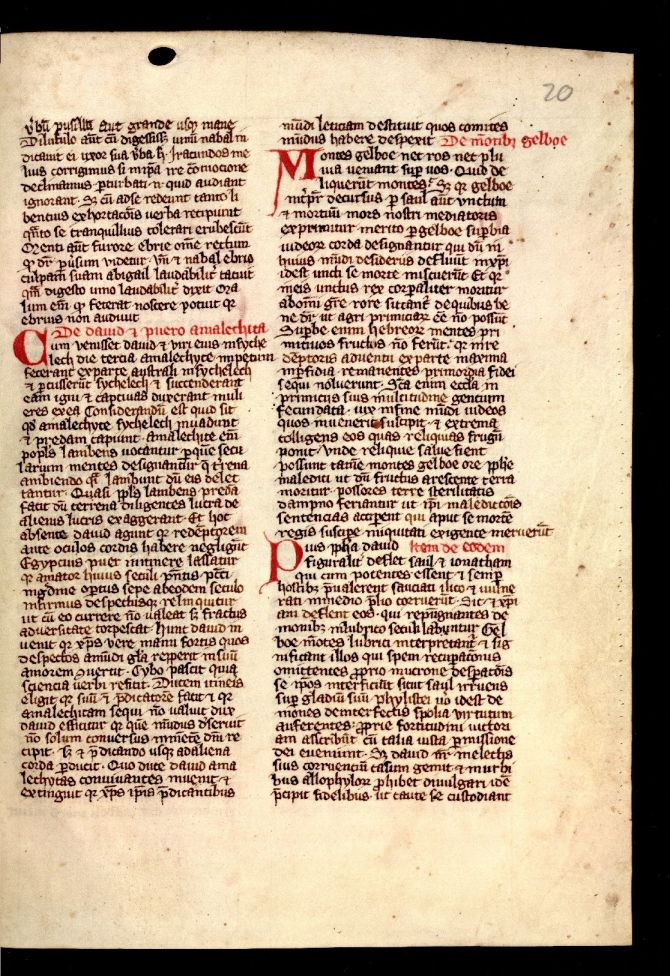 20
ũbũ pusillũ aut grande usq mane
Diluculo aut cũ digessiss uinũ nabal in
dicauit ei uxor sua ũba h Iracundos me
lius corrigimus si in ip̃a ire cõmocione
declinamus ꝑturbati n quid audiant
ignorant Sꝫ cũ ad se redeunt tanto li
bentius exhortacõis uerba recipiunt
q̃nto se tranquillius tolerari erubescũt
Menti aut furore ebrie om̃e rectum
qꝫ dr̃ ꝑuersum uidetur Vñ ⁊ nabal ebrio
culpam suam abigail laudabilit̃ tacuit
quã digesto uino laudabilit̃ dixit Ma
lum em̃ qꝫ fecerat noscere potuit qꝫ
ebrius non audiuit
De dauid ⁊ puero amalechita
Cum uenisset dauid ⁊ uiri eius in syche
lech die tercia amalechyte impetum
fecerant ex parte australi in sychelech
⁊ ꝑcusserũt sychelech ⁊ succenderant
eam igni ⁊ captiuas duxerant muli
eres ex ea Considerandũ est quid sit
qd̃ amalechyte sychelech inuadunt
⁊ predam capiunt amalechyte em̃
popl̃s lambens uocantur ꝑ que secu
larium mentes designantur q̃ terrena
ambiendo q̃si lambunt dũ eis delec
tantur Quasi ppl̃s lambens preda
facit dũ terrena diligentes lucra de
alienis lucris exaggerant Et hoc
absente dauid agunt qꝫ redẽptorem
ante oculos cordis habere negligũt
Egyptius puer in itinere lassatur
qꝫ amator huius seculi p̃ntis pcc̃i
nigdine oꝑtus sepe ab eodem seculo
infirmus despectusqꝫ relinquitur
ut cũ eo currere nõ ualeat sꝫ fractus
aduersitate torpescat Hunc dauid in
uenit qꝫ xp̃s uere manu fortis quos
despectos a mũdi gl̃a repperit in suũ
amorem ↄuertit Cybo pascit quia
sciencia uerbi reficit Ducem itineris
eligit qꝫ suũ ⁊ p̃dicatore facit ⁊ qꝫ
amalechitam sequi nõ ualuit dux
dauid efficitur qꝫ que mũdus dseruit
nõ solum conuersus in mente dñi re
cipit sꝫ ⁊ p̃dicando usqꝫ ad aliena
corda ꝑducit Quo duce dauid ama
lechytas conuiuantes inuenit ⁊
extinguit qꝫ xp̃s ip̃is p̃dicantibus
mũdi leticiam destruit quos comites
mũdus habere despexit De mõtibꝫ gelboe
Montes gelboe nec ros nec plu
uia ueniant suꝑ uos Quid de
liquerũt montes Sꝫ qꝫ gelboe
int̃pr̃ decursus ꝑ saul aut unctum
⁊ mortuũ mors nostri mediatoris
exprimitur merito ꝑ gelboe suꝑbia
iudeoꝝ corda designantur qui dũ in
huius mũdi desideriis defluũt in xp̃i
idest uncti se morte miscuerũt Et qꝫ
in eis unctus rex corꝑaliter moritur
ab om̃i gr̃e rore siccant̃ de quibus be
ne dr̃ ut agri primiciaꝝ ee nõ possũt
Suꝑbe enim hebreoꝝ mentes pri
mitiuos fructus nõ ferũt qꝫ in re
dẽptoris aduentũ ex parte maxima
in ꝑfidia remanentes primordia fidei
sequi noluerunt Sc̃a enim eccl̃a in
primiciis suis multitudine gentium
fecundata uix in fine mũdi iudeos
quos inuenerit suscipit ⁊ extrema
colligens eos quas reliquias frugũ
ponit unde relique salue fient
possunt tamẽ montes gelboe ore pphẽ
maledici ut dũ fructus arescente terra
moritur possores terre sterilitatis
dampno feriantur ut ip̃i maledictiõis
sentencias accipient qui apud se morte
regis suscipe iniquitati exigente meruerũt
Pius ppha dauid Item de eodem
figuralit̃ deflet saul ⁊ ionatham
qui cum potentes essent ⁊ semꝑ
hostibꝫ p̃ualerent sauciati ilico ⁊ uulne
rati in medio p̃lio corruerũt Sic ⁊ xp̃i
ani deflent eos qui repugnantes de
monibꝫ in lubrico seculi labũntur Gel
boe mõtes lubrici interpretant̃ ⁊ sig
nificant illos qui spem recuꝑaciõnis
omittentes ꝓprio mucrone desꝑatiõis
se ip̃os interficiũt sicut saul irruens
suꝑ gladiũ suũ phylistei uo idest de
mones de interfectis spolia uirtutum
auferentes ꝓprie fortitudini uictori
am ascribũt cũ talia iusta ꝑmissione
dei eueniunt Sꝫ dauid añ amelechs
suis corruenciũ casum gemit ⁊ in urbi
bus allophyloꝝ ꝓhibet diuulgari idẽ
p̃cipit fidelibus ut caute se custodiant